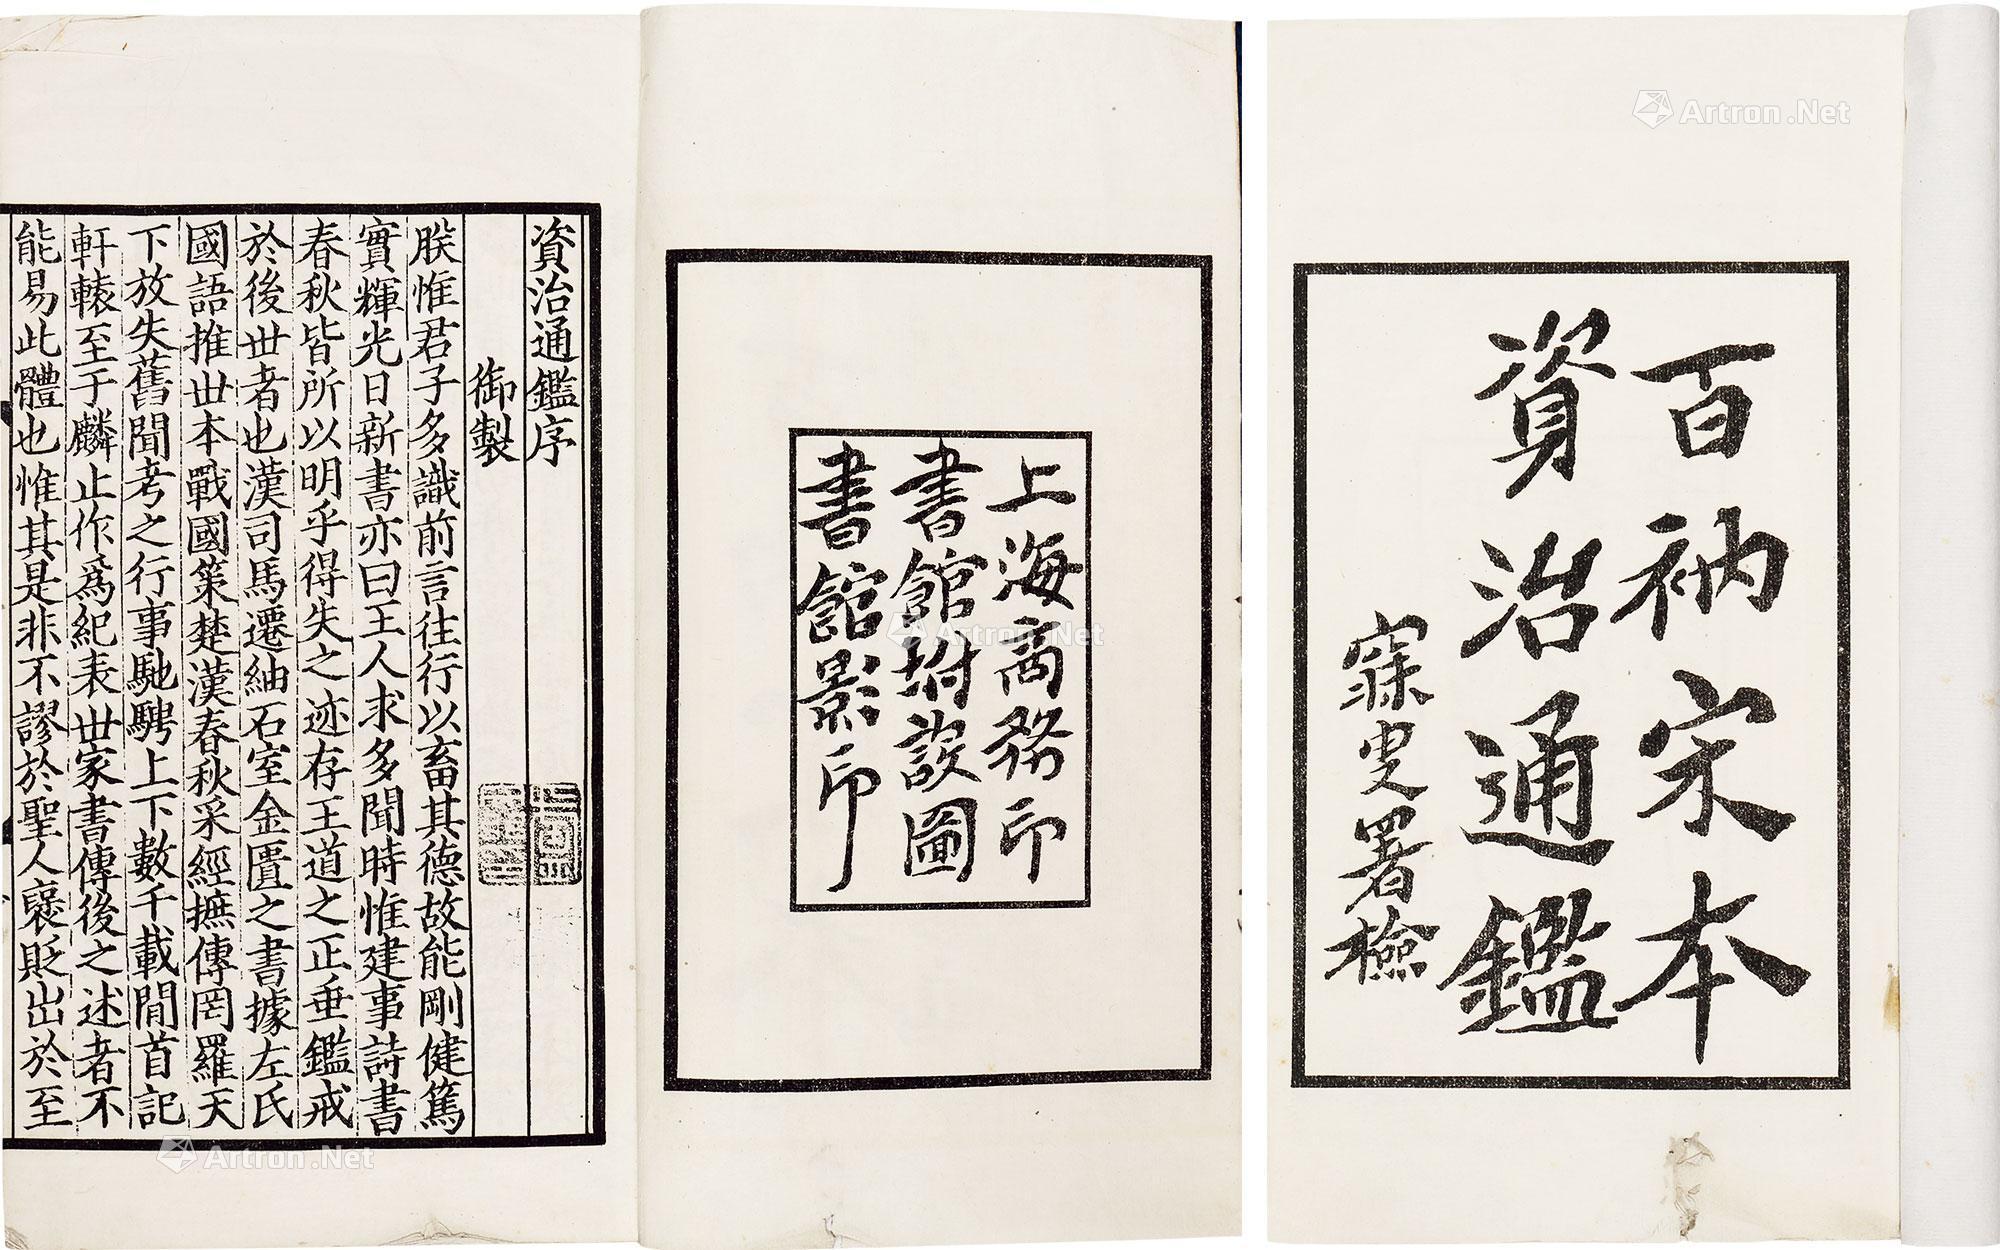 百衲宋本
資治通鑑
寐叟署檢
上海商務印
書館坿設圖
書館影印
資治通鑑序
御製
朕惟君子多識前言往行以畜其德故能剛健篤
實輝光日新書亦曰王人求多聞時惟建事詩書
春秋皆所以明乎得失之迹存王道之正垂鑑戒
於後世者也漢司馬遷紬石室金匱之書據左氏
國語推世本戰國策楚漢春秋采經摭傳罔羅天
下放失舊聞考之行事馳騁上下數千載閒首記
軒轅至于麟止作為紀表世家書傳後之述者不
能易此體也惟其是非不謬於聖人襃貶出於至
Artron.Net
Artron.Net
Artron.Net